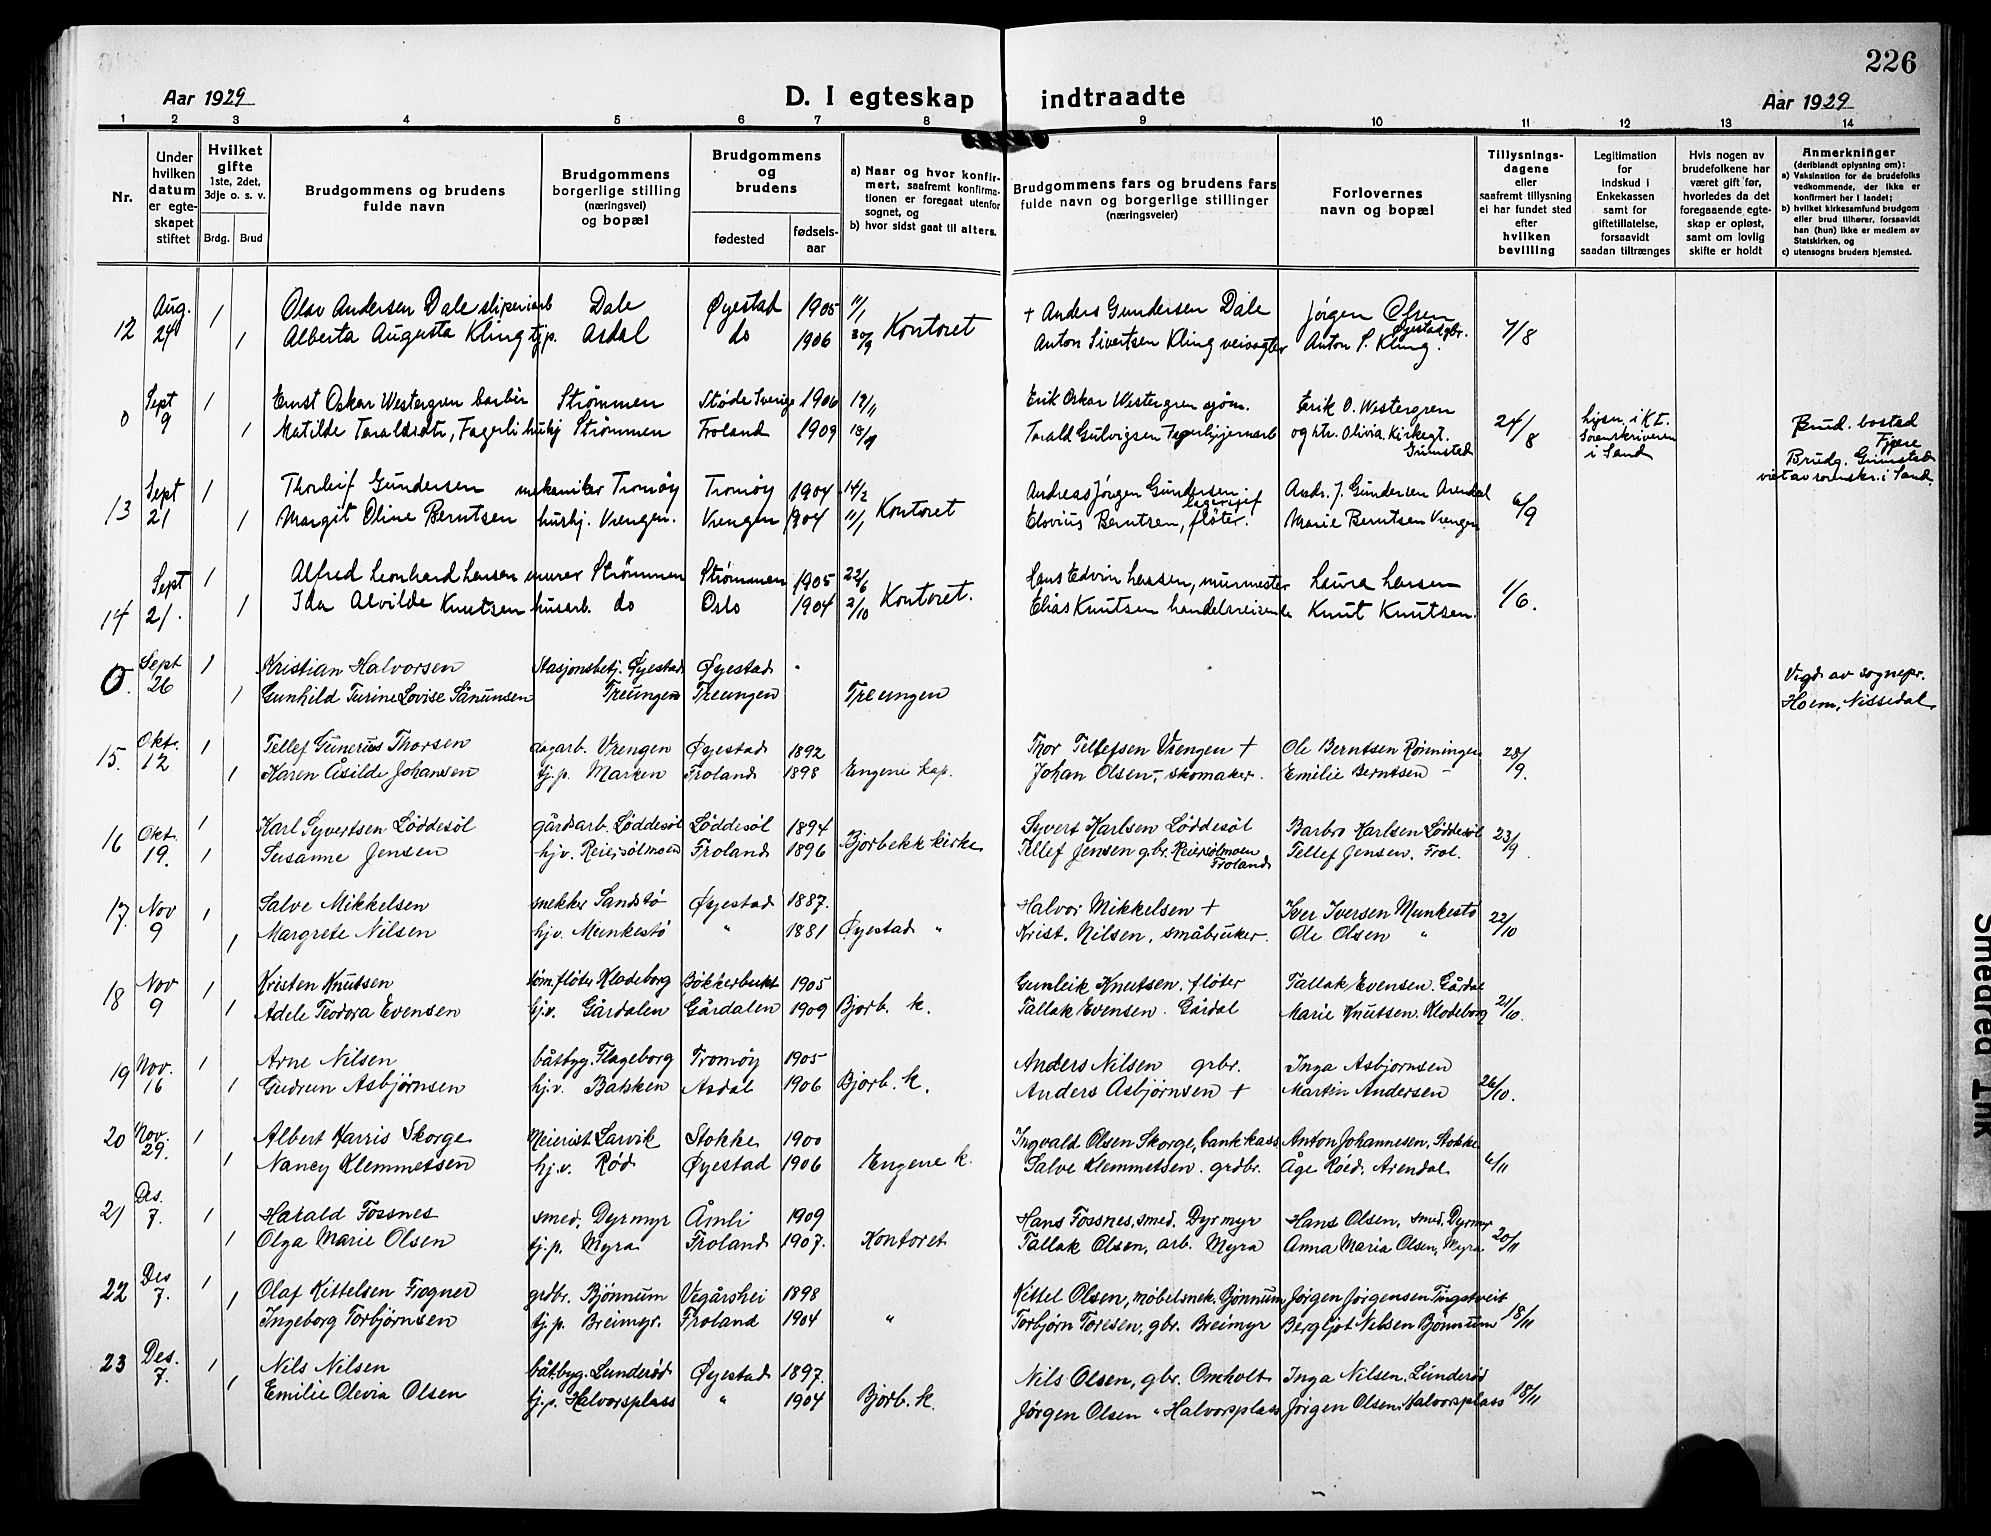 226
Aar 1929
D. I egteskap indtraadte
Aar 1929
1 2 3 4 5 6 7 8 9 10 11 12 13 14
Nr.
Under hvilken datum er egteskapet stiftet
Hvilket gifte 1ste, 2det, 3dje o. s. v.
Brdg. Brud
Brudgommens og brudens fulde navn
Brudgommens borgerlige stilling (næringsvei) og bopæl
Brudgommens og brudens
fødested fødsels-aar
a) Naar og hvor konfirmert, saafremt konfirmationen er foregaat utenfor sognet, og
b) hvor sidst gaat til alters.
Brudgommens fars og brudens fars fulde navn og borgerlige stillinger (næringsveier)
Forlovernes navn og bopæl
Tillysningsdagene eller saafremt tillysning ei har fundet sted efter hvilken bevilling
Legitimation for Indskud i Enkekassen samt for giftetillatelse, forsaavidt saadan tiltrænges
Hvis nogen av brudefolkene har været gift før, hvorledes da det foregaaende egteskap er opløst, samt om lovlig skifte er holdt
Anmerkninger (deriblandt oplysning om):
a) Vaksination for de brudefolks vedkommende, der ikke er konfirmert her i landet;
b) hvilket kirkesamfund brudgom eller brud tilhører, forsaavidt han (hun) ikke er medlem av Statskirken, og
c) utensogns bruders hjemsted.
12 Aug. 24 1 Olav Andersen Dale sliperiarb Dale Øyestad 1905 11/1 Kontoret + Anders Gundersen Dale Jørgen Olsen Øyestad gbr. 7/8
1 Alberta Augusta Kling tj.p. Asdal do 1906 20/9 Anton Sivertsen Kling veivogter Anton S. Kling.
0 Sept 9 1 Ernst Oskar Westergren barbér Strømmen Støde Sverige 1906 Erik Oskar Westergren sjøm. Erik O. Westergren 24/8 i K I. Sorenskriveren i Sand Brud. bosted Fjære
1 Matilde Taraldsdtr, Fagerli husj Strømmen Froland 1909 Tarald Gulvigsen og htr. Olivia Kirkegt. Grimstad Brudg. Grimstad viet av sorenskr. i Sand.
13 Sept 21 1 Thorleif Gundersen mekaniker Tromøy Tromøy 1904 14/2 Kontoret Andreas Jørgen Gundersen lagersjef Andr. J. Gundersen Arendal 6/9
1 Margit Oline Berntsen hushj. Vrengen. Vrengen 1904 11/1 Elovius Berntsen, fløter. Marie Berntsen Vrengen
14 Sept 21. 1 Alfred Leonhard Larsen murer Strømmen Strømmen 1905 22/6 Kontoret. Hans Edvin Larsen, murmester Laura Larsen 1/6.
1 Ida Alvilde Knutsen husarb. do Oslo 1904 2/10 Elias Knutsen handelsreisende Knut Knutsen.
0. Sept 26 1 Kristian Halvorsen Stasjonsbetj. Øyestad Øyestad Vigd av sognepr.
1 Gunhild Turine Lovise Sånunsen Treungen Treungen Treungen Hoem, Nissedal
15. Okt. 12 1 Tellef Gunerius Thorsen dagarb. Vrengen Øyestad 1892 Thor Tellefsen Vrengen + Ole Berntsen Rønningen 28/9.
1 Karen Åsilde Johansen tj.p. Marken Froland 1898 Engene kap. Johan Olsen, skomaker. Emilie Berntsen -
16 Okt. 19. 1 Karl Syvertsen Løddesøl gårdsarb. Løddesøl Løddesøl 1894 Bjorbekk kirke Syvert Karlsen Løddesøl Barbro Karlsen Løddesøl 23/9.
1 Susanne Jensen hjv. Reiersølmoen Froland 1896 Tellef Jensen gbr. Reiersølmoen Froland Tellef Jensen. Frol.
17. Nov 9 1 Salve Mikkelsen snekker Sandstø Øyestad 1887. Halvor Mikkelsen + Iver Iversen Munkestø 22/10
1 Margrete Nilsen hj.v. Munkestø " 1881 Øyestad " Krist. Nilsen, småbruker. Ole Olsen "
18 Nov 9 1 Kristen Knutsen tøm.fløter Klodeborg Bokkerbukt 1905 Gunleik Knutsen. fløter Tallak Evensen. Gårdal 21/10.
1 Adele Teodora Evensen hj.v. Gårdalen Gårdalen 1909 Bjorb. k. Tallak Evensen. Gårdal Marie Knutsen. Klodeborg
19 Nov. 16 1 Arne Nilsen båtbyg. Flageborg Tromøy 1905 Anders Nilsen grbr. Inga Asbjornsen 26/10.
1 Gudrun Asbjørnsen hj.v. Bakken Asdal 1906 Bjorb. k. Anders Asbjørnsen + Martin Andersen
20 Nov. 29. 1 Albert Harris Skorge Meierist Larvik Stokke 1900 Ingvald Olsen Skorge, bankkass Anton Johannesen, Stokke 6/11
1 Nancy Klemmetsen hj.v. Rød Øyestad 1906 Engene k. Salve Klemmetsen. grdbr. Åge Roed. Arendal
21 Des. 7. 1 Harald Fossnes smed. Dyrmyr Åmli 1909 Hans Fossnes, smed. Dyrmyr Hans Olsen, smed, Dyrmyr 20/11
1 Olga Marie Olsen tj.p. Myra Froland 1907. Kontoret Tallak Olsen, arb. Myra Anna Maria Olsen, Myra
22 Des 7. 1 Olaf Kittelsen Frogner grdbr. Bjönnum Vegårshei 1898 Kittel Olsen, møbelsnek. Bjönnum Jørgen Jørgensen Tingstveit 18/11
1 Ingeborg Torbjørnsen tj.p. Breimyr. Froland 1904 " Torbjørn Toresen, gbr. Breimyr Bergljot Nelsen Bjönnum
23 Des. 7. 1 Nils Nilsen båtbyg. Lunderød Øyestad 1897. Nils Olsen, gbr. Omholt Inga Nilsen. Lunderød 18/11
1 Emilie Olevia Olsen tj.p. Halvorsplass " 1904 Bjorb. k. Jørgen Olsen " Halvorsplass Jørgen Olsen. Halvorsplass
Smeared Ink